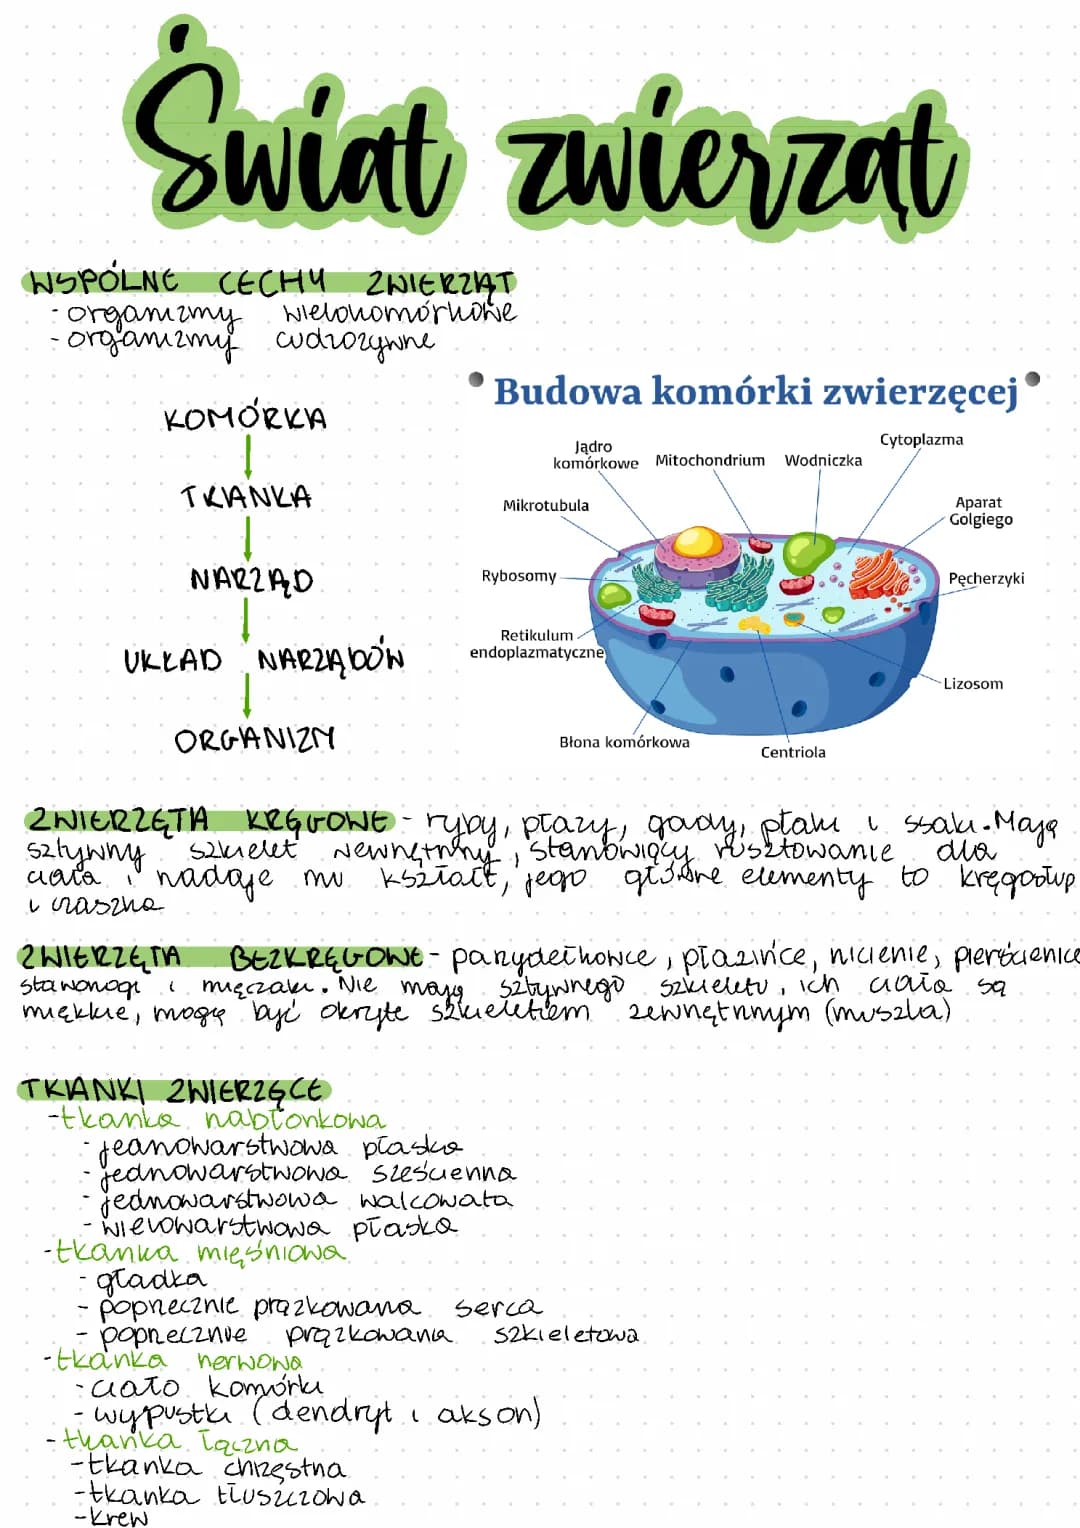 Świat zwierząt
WSPÓLNE CECHY ZWIERZĄT
- organizmy wielokomórkowe
- organizmy cudzożywne
KOMÓRKA
TKANKA
NARZĄD
UKŁAD NARZĄDÓW
ORGANIZM
Budowa komórki zwierzęcej
Jądro
komórkowe
Mitochondrium
Wodniczka
Cytoplazma
Mikrotubula
Aparat
Golgiego
Rybosomy
Pęcherzyki
Retikulum
endoplazmatyczne
Lizosom
Błona komórkowa
Centriola
ZWIERZĘTA KRĘGOWE - ryby, płazy, gady, ptaki i ssaki. Mają
sztywny szkielet wewnętrzny, stanowiący rusztowanie dla
ciała i nadaje mu kształt, jego główne elementy to kręgosłup
i czaszka
ZWIERZĘTA BEZKRĘGOWE - parzydełkowce, płazińce, nicienie, pierścienice
stawonogi i mięczaki. Nie mają sztywnego szkieletu, ich ciała są
miękkie, mogą być okryte szkieletem zewnętrznym (muszla)
TKANKI ZWIERZĘCE
- tkanka nabłonkowa
- jednowarstwowa płaska
- jednowarstwowa sześcienna
- jednowarstwowa walcowata
- wielowarstwowa płaska
- tkanka mięśniowa
- gładka
- poprzecznie prążkowana serca
- poprzecznie prążkowana szkieletowa
- tkanka nerwowa
- ciało komórki
- wypustki (dendryt i akson)
- tkanka łączna
- tkanka chrzęstna
- tkanka tłuszczowa
- krew